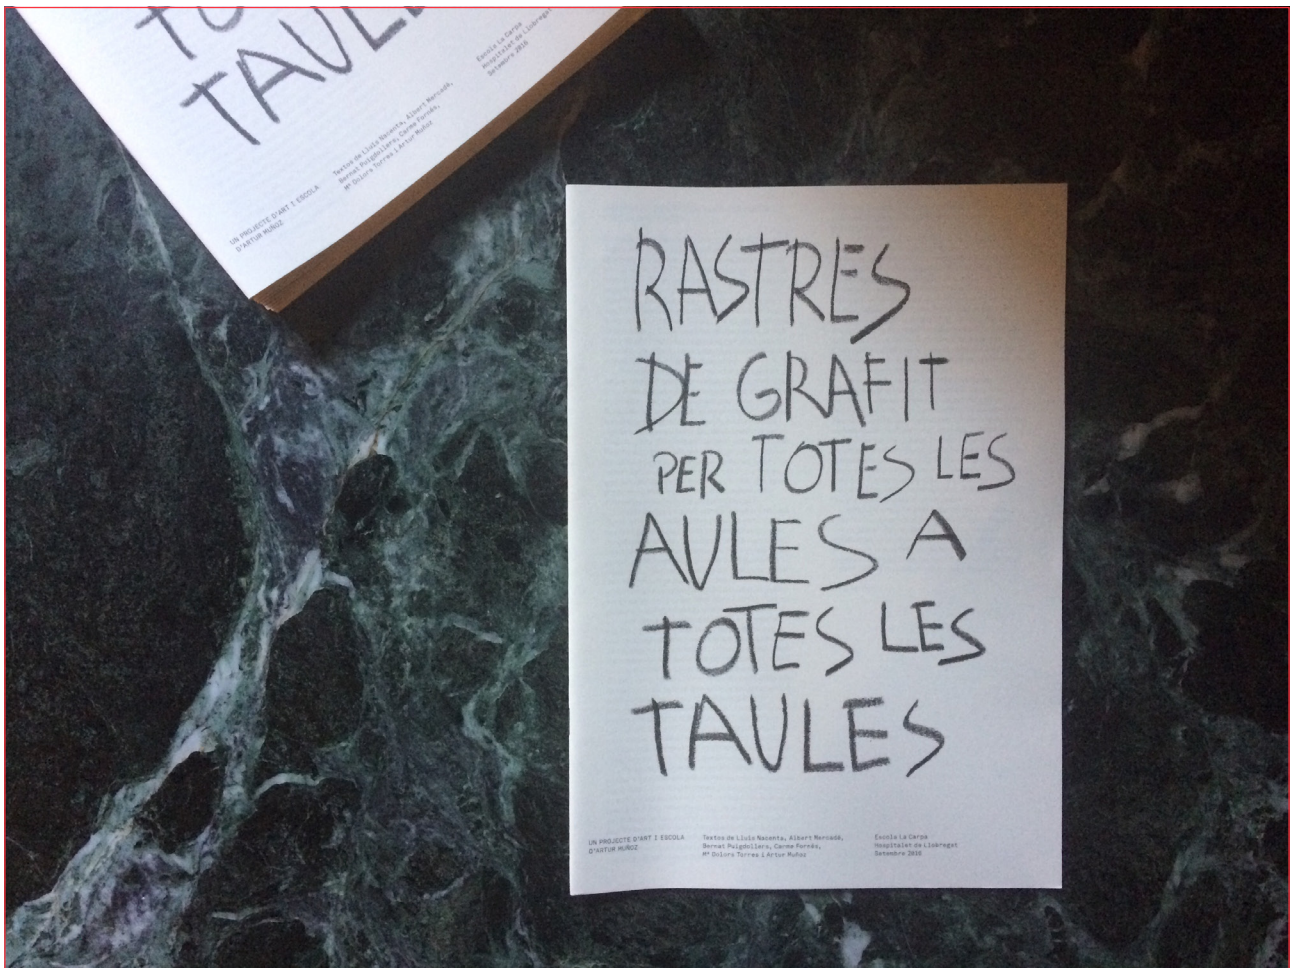 TO
TAUL
UN PROJECTE D'ART I ESCOLA
D'ARTUR MUÑOZ
Textos de Lluís Nacenta, Albert Mercadé,
Bernat Puigdollers, Carme Fornés,
Mª Dolors Torres i Artur Muñoz
Escola La Carpa
Hospitalet de Llobregat
Setembre 2016
RASTRES
DE GRAFIT
PER TOTES LES
AULES A
TOTES LES
TAULES
UN PROJECTE D'ART I ESCOLA
D'ARTUR MUÑOZ
Textos de Lluís Nacenta, Albert Mercadé,
Bernat Puigdollers, Carme Fornés,
Mª Dolors Torres i Artur Muñoz
Escola La Carpa
Hospitalet de Llobregat
Setembre 2016